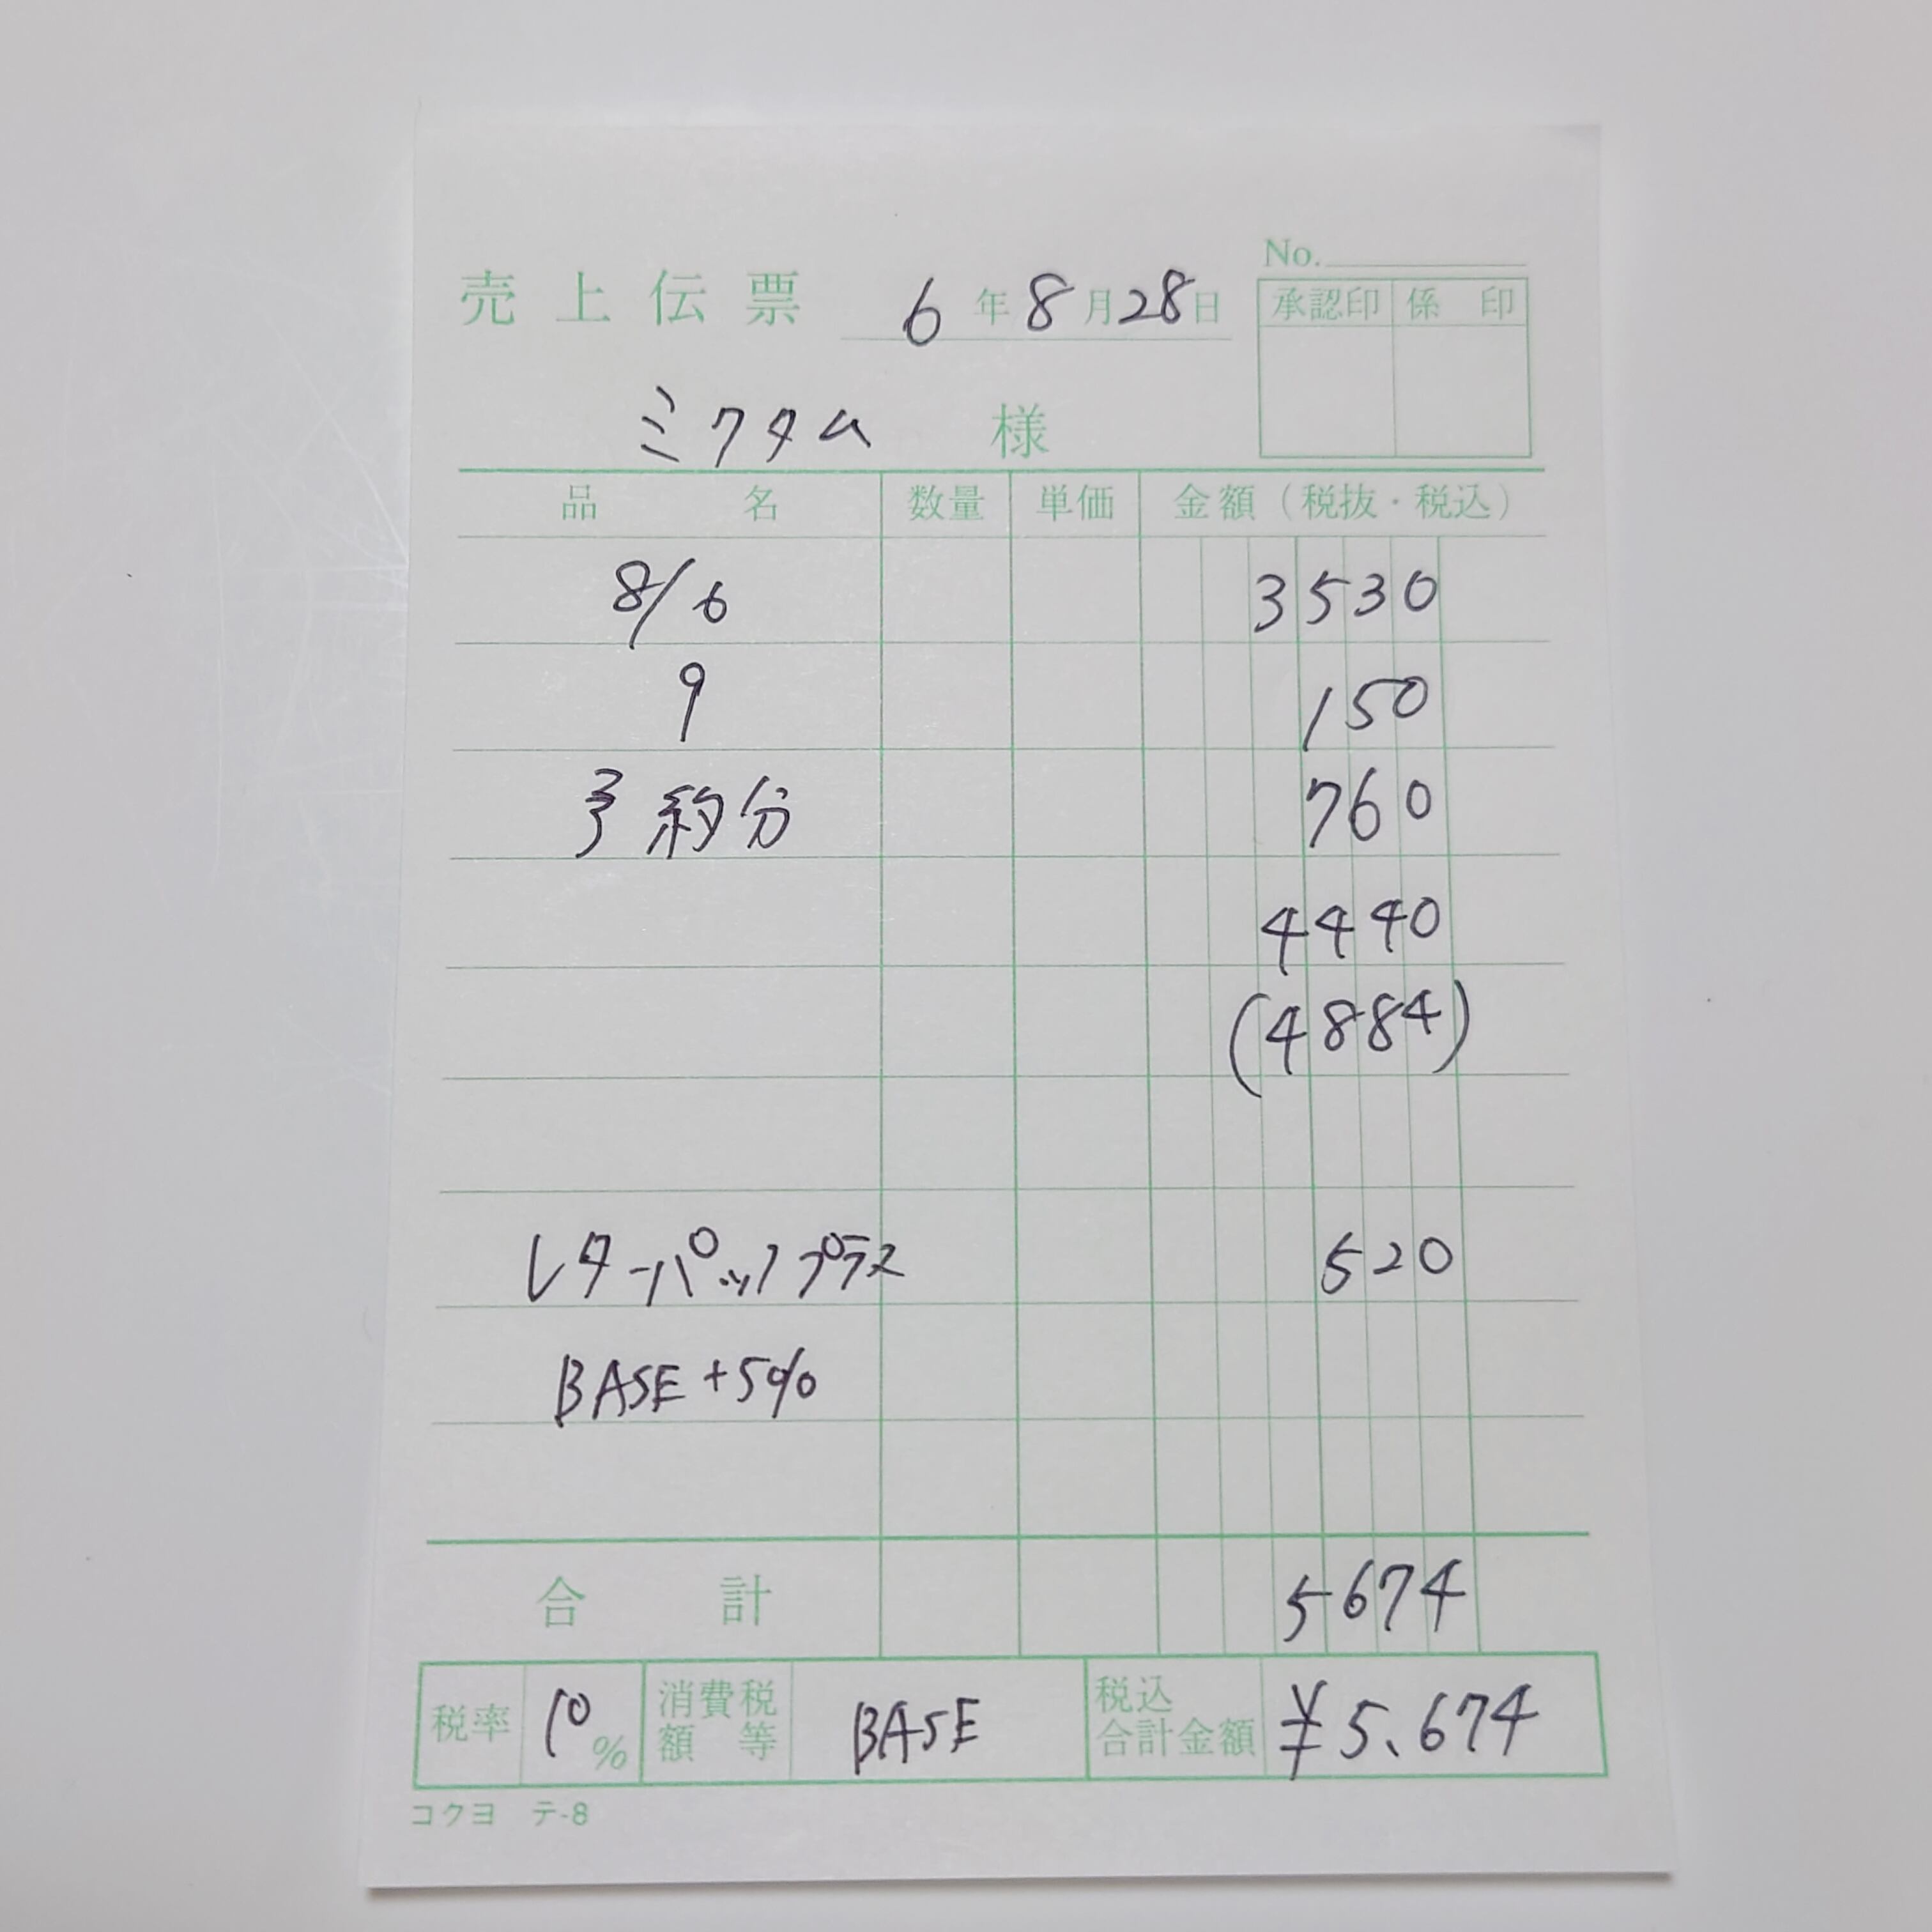 No.
売上伝票 6年8月28日
承認印 係印
ミクタム 様
品名 数量 単価 金額(税抜・税込)
8/6 3530
9 150
予約分 760
4440
(4884)
レターパックプラス 520
BASE+5%
合計 5674
税率 10% 消費税額等 BASE 税込合計金額 ¥5,674
コクヨ テ-8